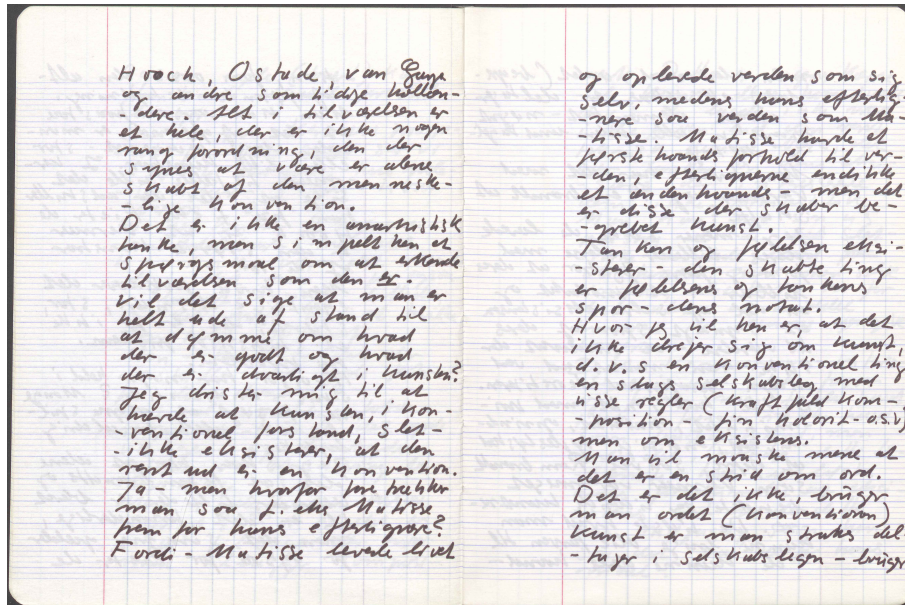 Hooch, Ostade, van Goyen
og andre samtidige hollæn-
-dere. Alt i tilværelsen er
et hele, der er ikke nogen
rang forordning, den der
synes at være er alene
skabt af den menneske-
-lige konvention.
Det er ikke en anarkistisk
tanke, men simpelthen et
spørgsmaal om at erkende
tilværelsen som den er.
Vil det sige at man er
helt ude af stand til
at dømme om hvad
der er godt og hvad
der er daarligt i kunsten?
Jeg drister mig til at
hævde at kunsten, i kon-
-ventionel forstand, slet-
-ikke eksisterer, at den
rent ud er en konvention.
Ja - men hvorfor foretrækker
man saa f. eks Matisse
frem for hans efterlignere?
Fordi - Matisse levede livet
og oplevede verden som sig
selv, medens hans efterlig-
-nere saa verden som Ma-
-tisse. Matisse havde et
førstehaands forhold til ver-
-den, efterlignerne endikke
et andenhaands - men det
er disse der skaber be-
-grebet kunst.
Tanken og følelsen eksi-
-sterer - den skabte ting
er følelsens og tankens
spor - dens notat.
Hvor jeg vil hen er, at det
ikke drejer sig om kunst,
d.v.s en konventionel ting
en slags selskabsleg med
visse regler (kraftfuld kom-
-position - fin kolorit - o.s.v)
men om eksistens.
Man vil maaske mene at
det er en strid om ord.
Det er det ikke, bruger
man ordet (konventionen)
kunst er man straks del-
-tager i selskabslegen - bruger